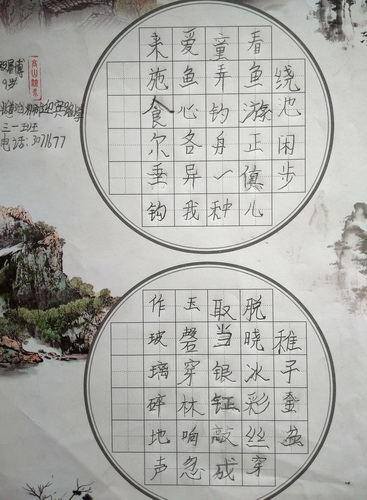 绕池闲步
看鱼游正值儿
童弄钓舟一种
爱鱼心各异我
来施食尔垂钩
稚子金盆
脱晓冰彩丝穿
取当银钲敲成
玉磬穿林响忽
作玻璃碎地声
9岁
三一班
电话:3071677